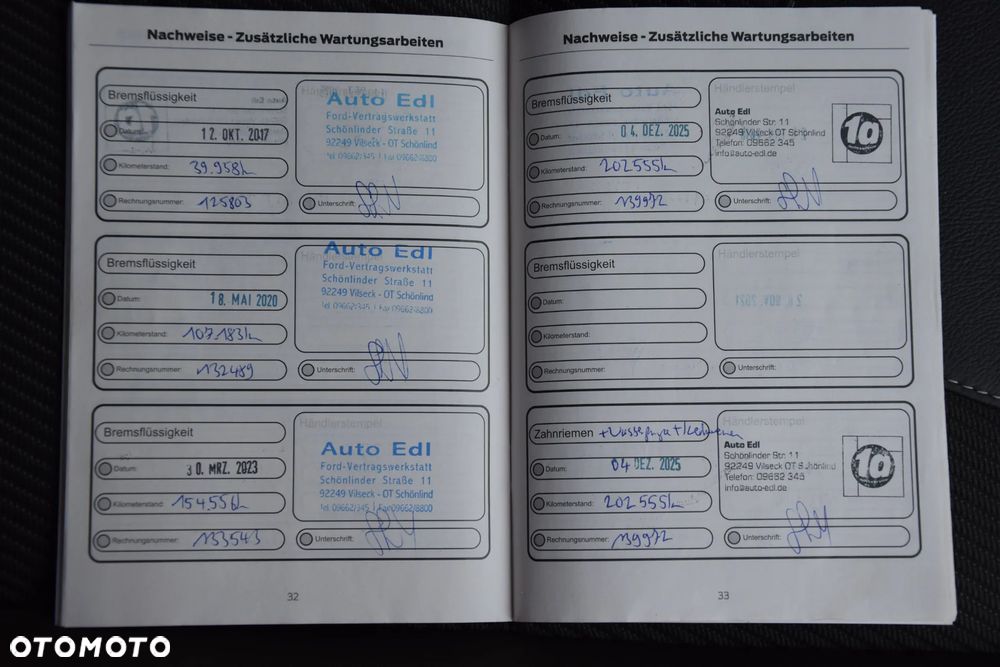 Nachweise - Zusätzliche Wartungsarbeiten
Bremsflüssigkeit
Datum: 12. OKT. 2017
Kilometerstand: 39.958k
Rechnungsnummer: 125803
Auto Edl
Ford-Vertragswerkstatt
Schönlinder Straße 11
92249 Vilseck - OT Schönlind
Tel. 09662/345 | Fax 09662/8800
Unterschrift:
Bremsflüssigkeit
Datum: 18. MAI 2020
Kilometerstand: 107.183k
Rechnungsnummer: 132489
Auto Edl
Ford-Vertragswerkstatt
Schönlinder Straße 11
92249 Vilseck - OT Schönlind
Tel. 09662/345 | Fax 09662/8800
Unterschrift:
Bremsflüssigkeit
Datum: 30. MRZ. 2023
Kilometerstand:
Rechnungsnummer: 133543
Händlerstempel
Auto Edl
Ford-Vertragswerkstatt
Schönlinder Straße 11
92249 Vilseck - OT Schönlind
Tel. 09662/345 | Fax 09662/8800
Unterschrift:
32
Nachweise - Zusätzliche Wartungsarbeiten
Bremsflüssigkeit
Datum: 04. DEZ. 2025
Kilometerstand: 202555k
Rechnungsnummer: 139972
Händlerstempel
Auto Edl
Schönlinder Str. 11
92249 Vilseck OT Schönlind
Telefon: 09662 345
info@auto-edl.de
10
Unterschrift:
Bremsflüssigkeit
Datum:
Kilometerstand:
Rechnungsnummer:
Händlerstempel
Unterschrift:
Zahnriemen
Datum: 04 DEZ. 2025
Kilometerstand: 202555k
Rechnungsnummer: 139972
Händlerstempel
Auto Edl
Schönlinder Str. 11
92249 Vilseck OT Schönlind
Telefon: 09662 345
info@auto-edl.de
10
Unterschrift:
33
OTOMOTO